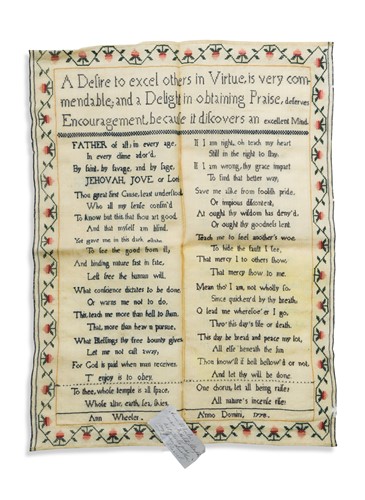 A Desire to excel others in Virtue, is very com-
mendable; and a Delight in obtaining Praise, deserves
Encouragement, because it discovers an excellent Mind.
FATHER of all; in every age,
In every clime ador'd,
By saint, by savage, and by sage,
JEHOVAH, JOVE or Lord
Thou great first Cause, least understood,
Who all my sense confin'd
To know but this, that thou art good,
And that myself am blind.
Yet gave me in this dark estate
To see the good from ill,
And binding nature fast in fate,
Left free the human will.
What conscience dictates to be done,
Or warns me not to do,
This teach me more than hell to shun,
That, more than heav'n pursue.
What Blessings thy free bounty gives,
Let me not cast away,
For God is paid when man receives,
T' enjoy is to obey.
To thee, whose temple is all space,
Whose altar, earth, sea, skies,
Ann Wheeler
If I am right, oh teach my heart
Still in the right to stay,
If I am wrong, thy grace impart
To find that better way.
Save me alike from foolish pride,
Or impious discontent,
At ought thy wisdom has deny'd,
Or ought thy goodness lent.
Teach me to feel another's woe,
To hide the fault I see,
That mercy I to others show,
That mercy show to me.
Mean tho' I am, not wholly so,
Since quicken'd by thy breath,
O lead me wheresoe'er I go,
Thro' this day's life or death.
This day be bread and peace my lot,
All else beneath the sun
Thou know'st if best bestow'd or not,
And let thy will be done.
One chorus, let all being raise;
All nature's incense rise;
Anno Domini, 1778.